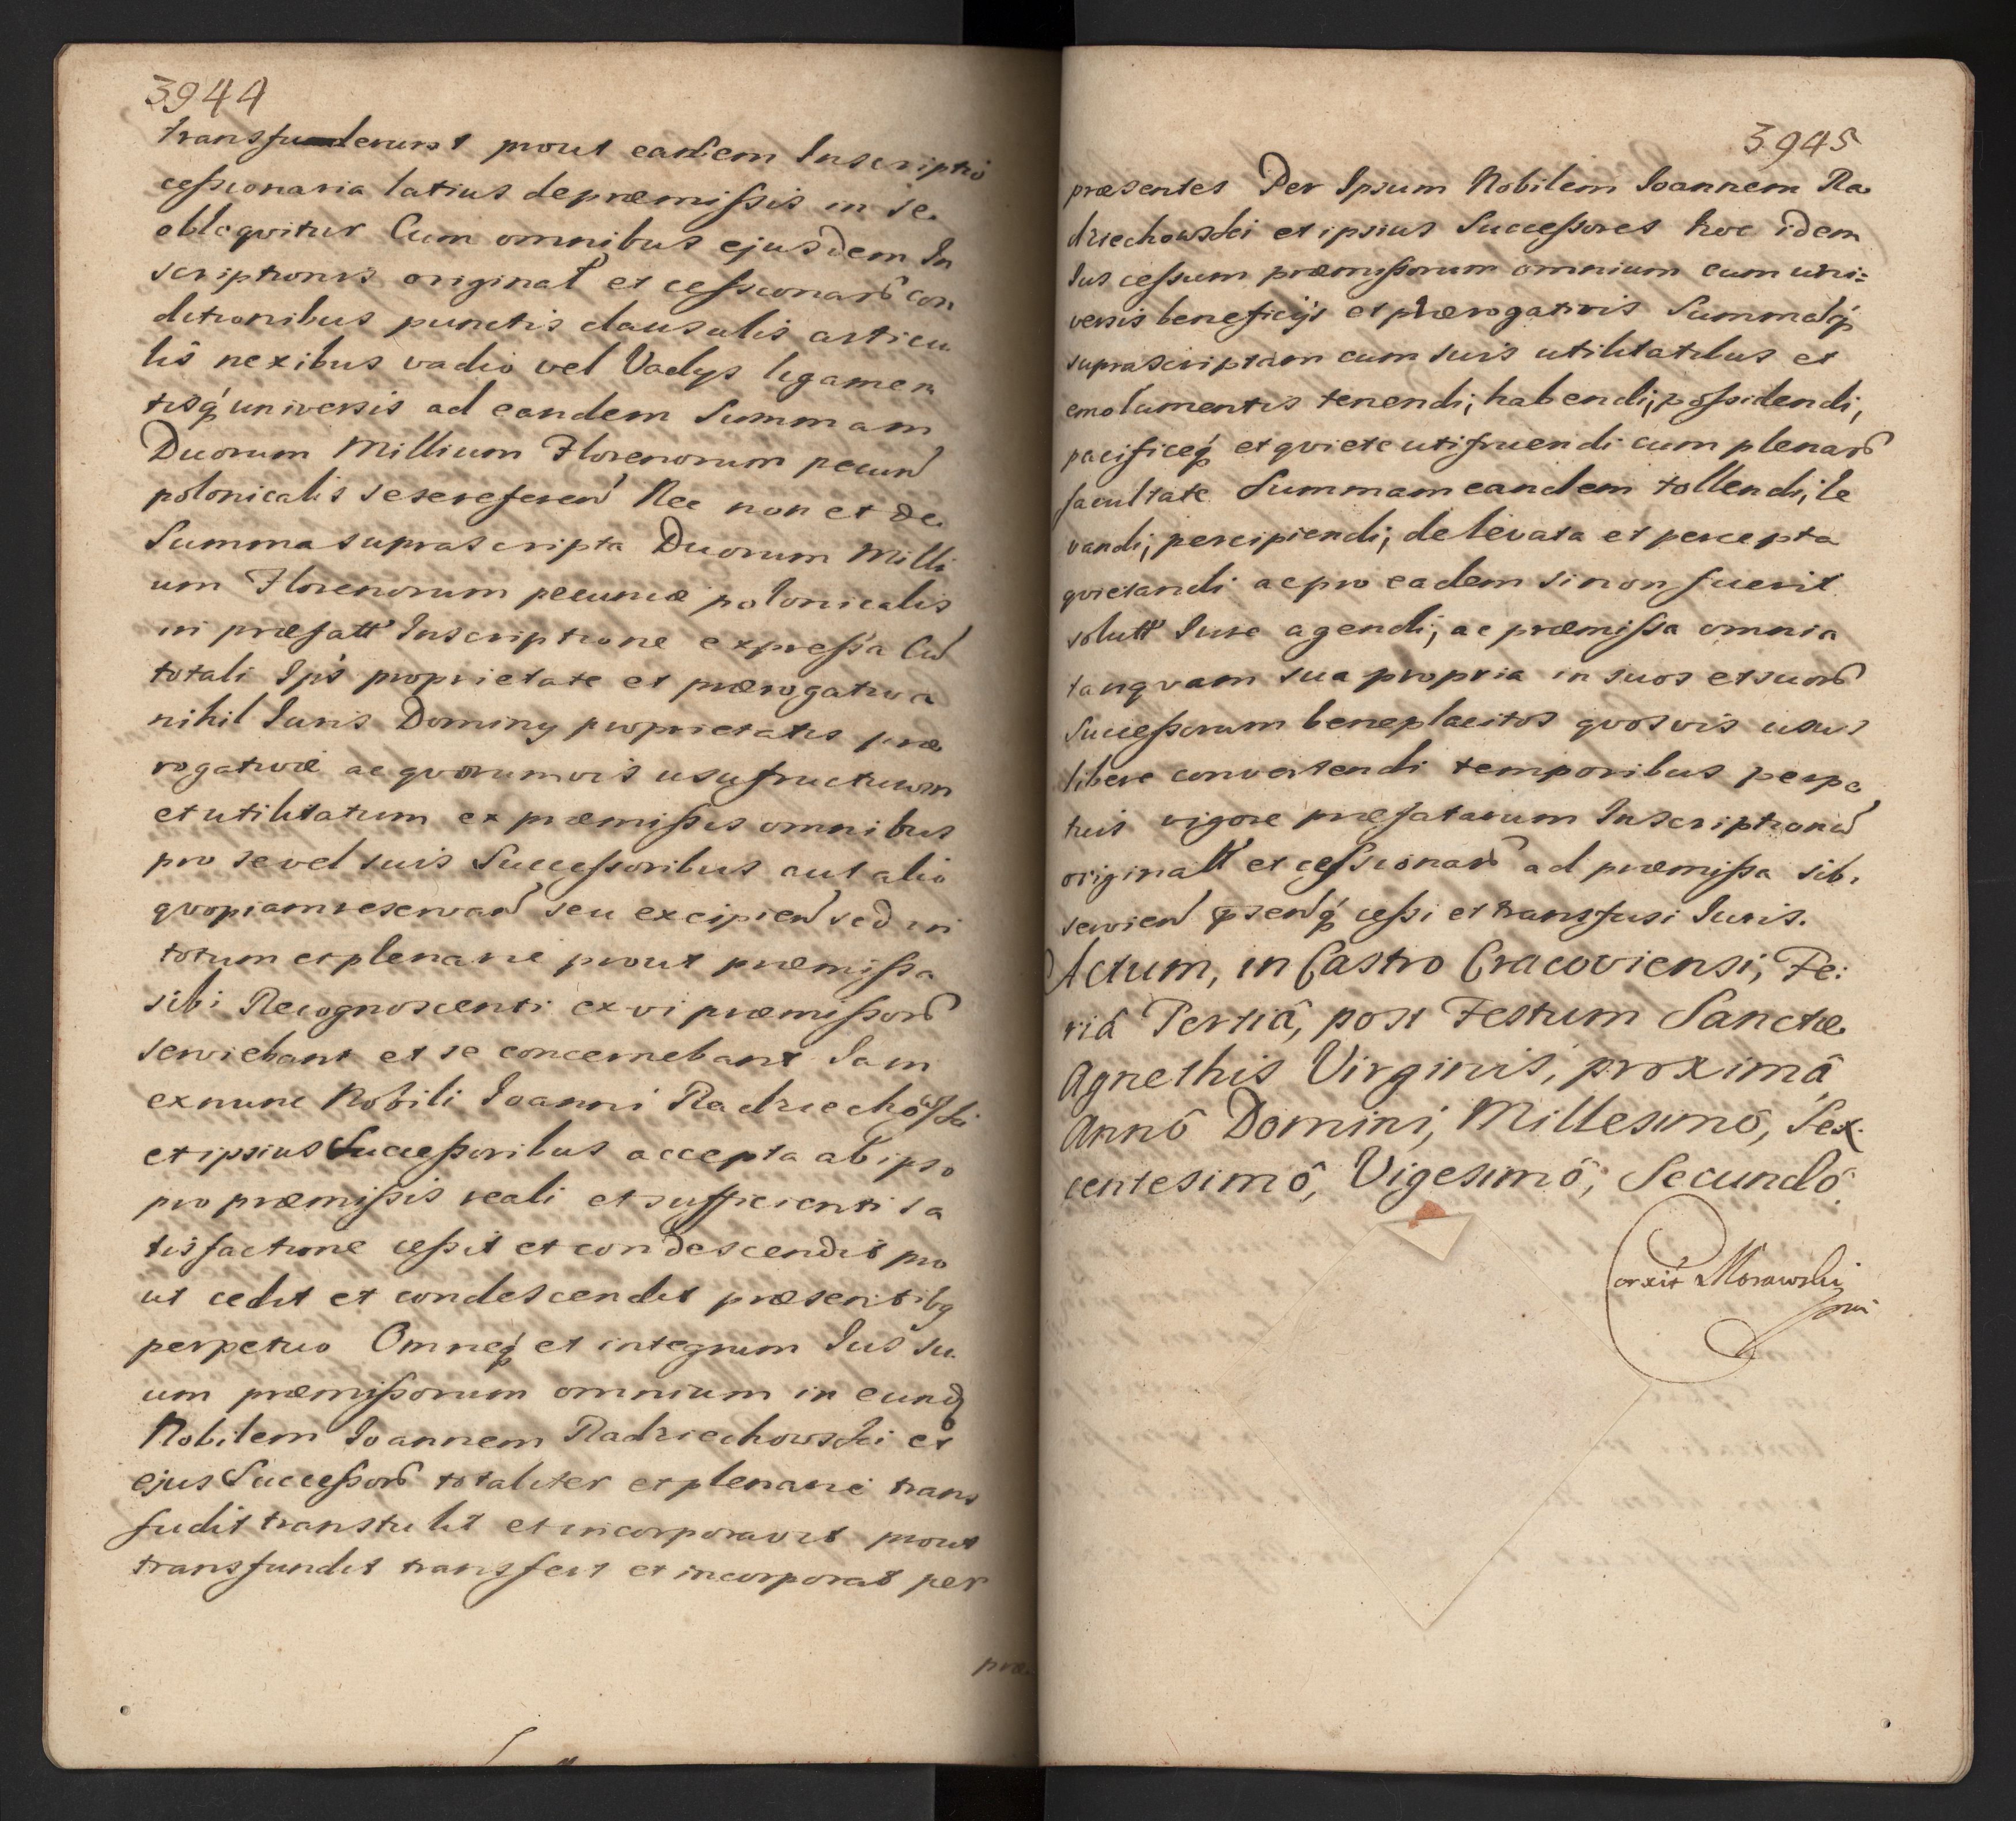 3944
transfuderunt prout eadem Inscriptio
cessionaria latius de præmissis in se
obloqvitur Cum omnibus ejusdem In
scriptionis original et cessionar con
ditionibus punctis clausulis articu
lis nexibus vadio vel Vadys ligamen
tisq universis ad eandem Summam
Duorum Millium Florenorum pecun
polonicalis sese referen Nec non et de
Summa suprascripta Duorum Milli
um Florenorum pecuniæ polonicalis
in præfatt Inscriptione expressa Cu
totali Ips proprietate et prærogativa
nihil Iuris Dominy proprietatis præ
rogativæ ac qvorumvis usufructuum
et utilitatum ex præmissis omnibus
pro se vel suis Successoribus aut alio
qvopiam reservan seu excipien sed in
totum et plenarie prout præmissa
sibi Recognoscenti ex vi præmissor
serviebant et se concernebant Iam
ex nunc Nobili Ioanni Radziechowski
et ipsius Successoribus accepta ab ipso
pro præmissis reali et sufficienti sa
tisfactione cessit et condescendit pro
ut cedit et condescendit præsentibq
perpetuo Omneq et integrum Ius su
um præmissorum omnium in eund
Nobilem Ioannem Radziechowski et
ejus Successor totaliter et plenarie trans
fudit transtulit et incorporavit prout
transfundit transfert et incorporat per
præ
3945
præsentes Per Ipsum Nobilem Ioannem Ra
dziechowski et ipsius Successores hoc idem
Ius cessum præmissorum omnium cum uni=
versis beneficijs et prærogativis Summaq
suprascriptam cum suis utilitatibus et
emolumentis tenendi, habendi, possidendi,
pacificeq et qviete utifruendi cum plenar
facultate Summam eandem tollendi, le
vandi, percipiendi, de levata et percepta
qvietandi ac pro eadem si non fuerit
solutt Iure agendi, ac præmissa omnia
tanqvam sua propria in suos et suor
Successorum beneplacitos qvosvis usus
libere convertendi temporibus perpe
tuis vigore præfatarum Inscription
originall et cessionar ad præmissa sib
servien psenq cessi et transfusi Iuris.
Actum, in Castro Cracoviensi, Fe:
riâ Tertiâ, post Festum Sanctæ
Agnethis Virginis, proximâ
Annô Domini, Millesimô, Sex
centesimô, Vigesimô, Secundô
Corxit Morawski
mp